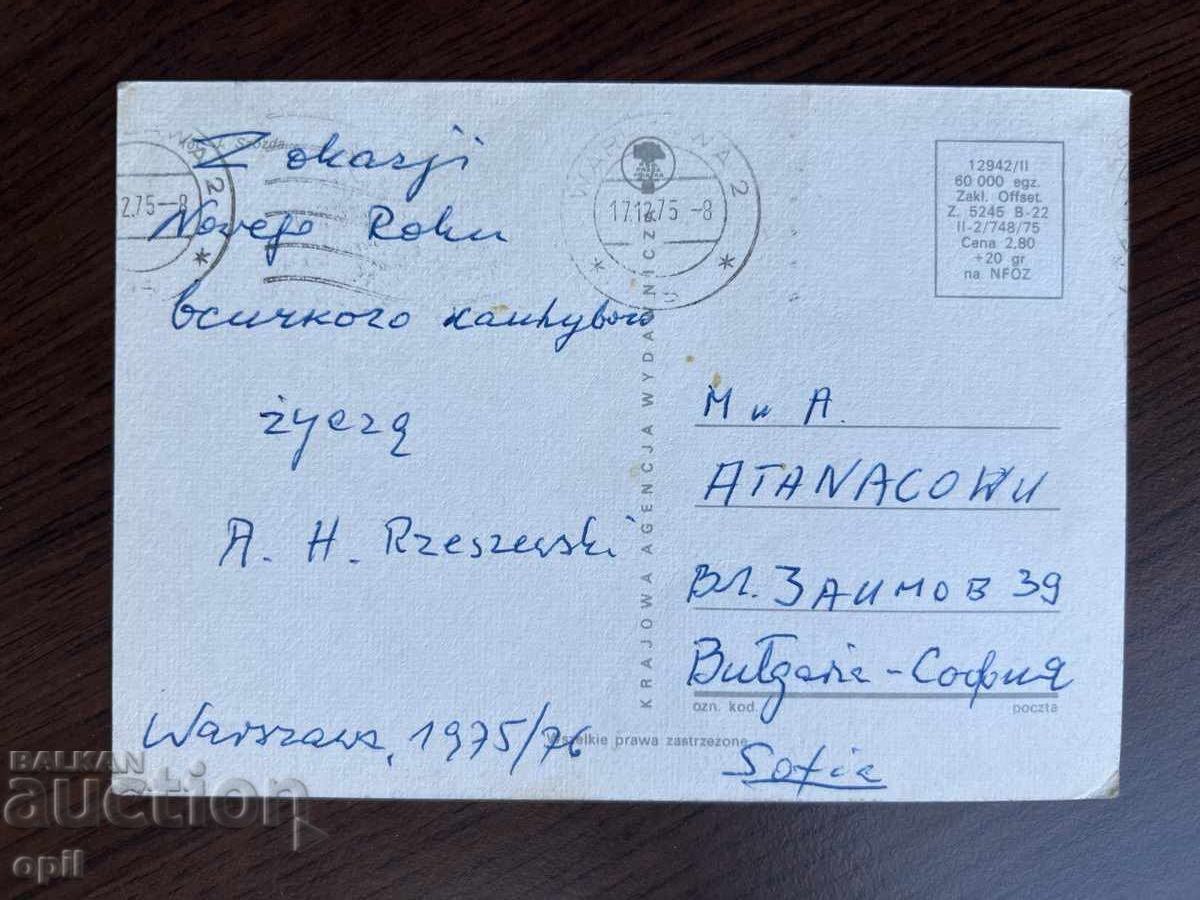 Z okazji
Nowego Roku
всичкого
życzą
A. H. Rzeszewski
Warszawa, 1975/76
WA 2
2.75-8
WARSZAWA 2
17.12.75 -8
KRAJOWA AGENCJA WYDAWNICZA
12942/II
60 000 egz.
Zakl. Offset.
Z. 5245 B-22
II-2/748/75
Cena 2,80
+20 gr
na NFOZ
М и А.
ATANACOWИ
ВЛ. ЗАИМОВ 39
Bułgaria - София
ozn. kod. poczta
Sofia
Wszelkie prawa zastrzeżone
BALKAN
auction
opil